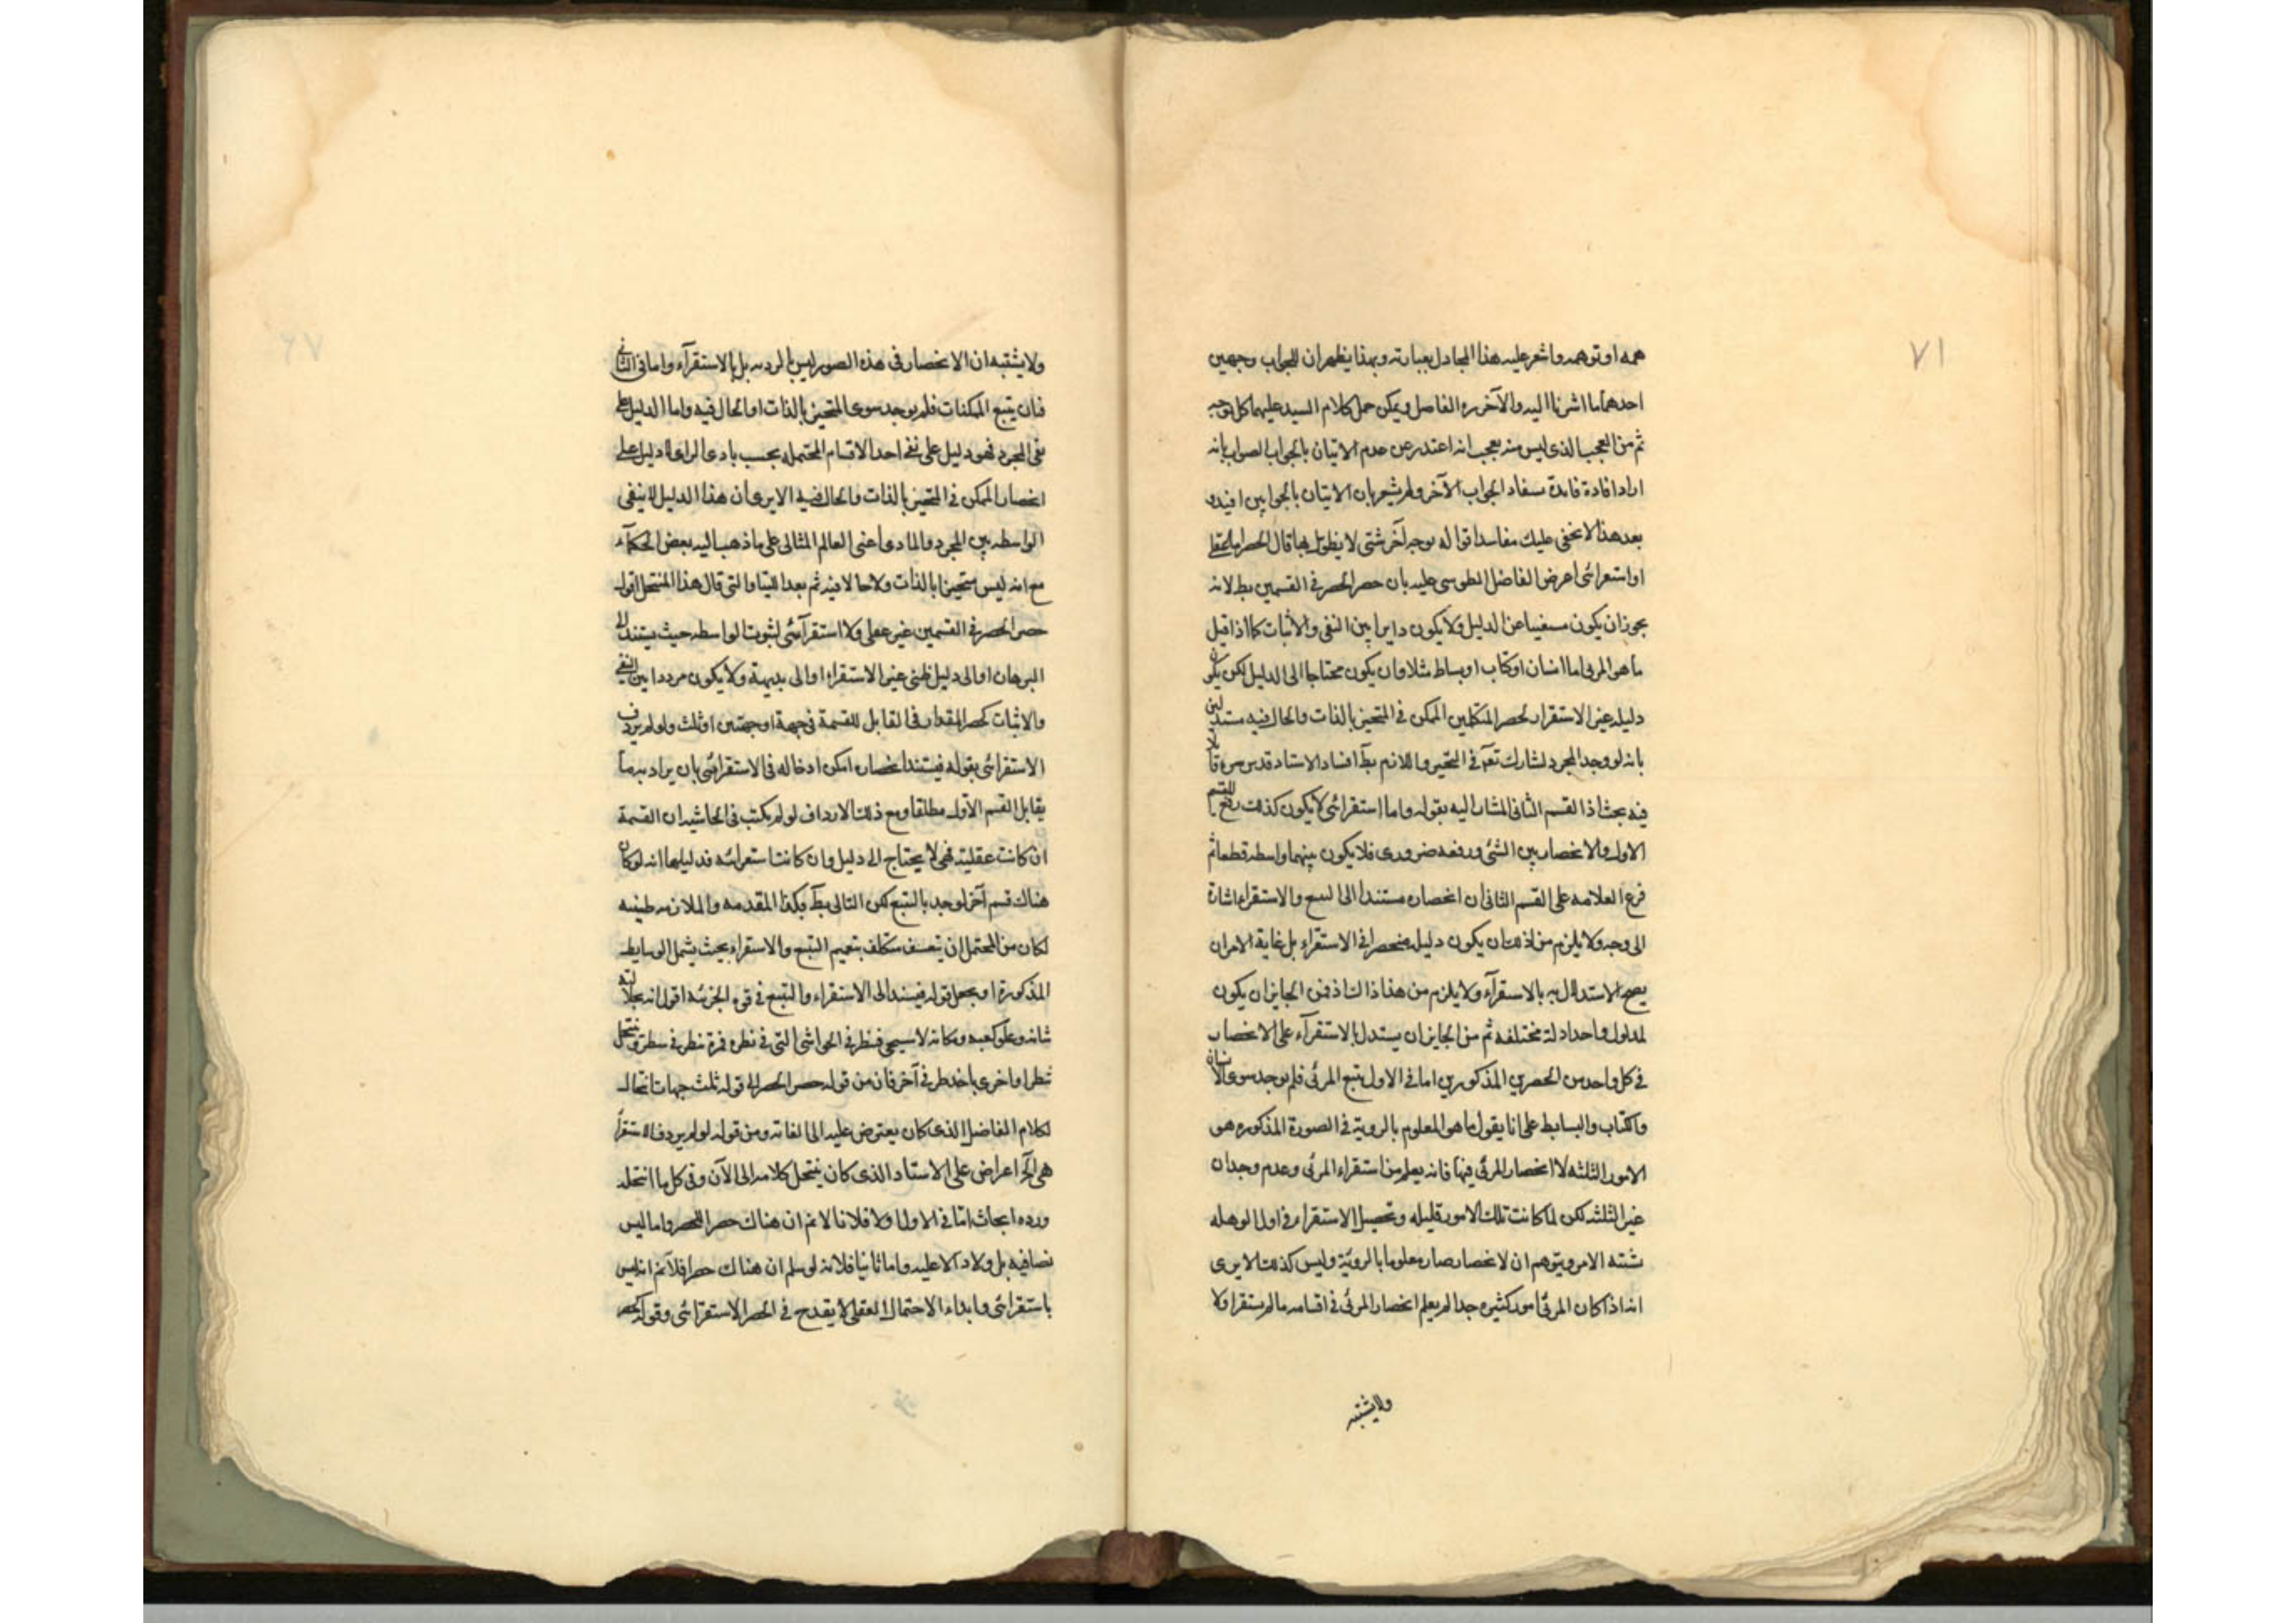 ٧١
همه او توهمه واشعر عليه هذا المجادل بعبارته وبهذا يظهر ان للجواب وجهين
احدهما ما اشرنا اليه والآخر ره الفاضل ويمكن حمل كلام السيد عليهما كل بوجه
ثم من العجب الذى ليس منه بعجب انه اعتذر عن عدم الاتيان بالجواب الصواب بانه
اراد افادة فايدة سفاد الجواب الآخر ولم يشعر بان الاتيان بالجوابين افيد و
بعد هذا لا يخفى عليك مفاسد اقواله بوجه آخر شتى لا يطول بها قال الحصر اما عقلى
او استقرائى اعرض الفاضل الطوسى عليه بان حصر الحصر فى القسمين بط لانه
يجوز ان يكون مستغنيا عن الدليل ولا يكون دايرا بين النفى والاثبات كما اذا قيل
ما هو المرئى اما انسان او كتاب او بساط مثلا وان يكون محتاجا الى الدليل لكن يكون
دليله غير الاستقرار كحصر المتكلمين الممكن فى المتحيز بالذات والحال فيه مستدلين
بانه لو وجد المجرد لشارك تعالى فى التجرد واللازم بط افساد الاستاد قدس سره
فيه بحث اذ القسم الثانى المشار اليه بقوله واما استقرائى لا يكون كذلك رفع للقسم
الاول والانحصار بين الشئ ورفعه ضرورى فلا يكون بينهما واسطه قطعا ثم
فرع العلامه على القسم الثانى ان انحصاره مستند الى التتبع والاستقراء اشارة
الى وجه ولا يلزم من ذلك ان يكون دليله منحصرا فى الاستقراء بل غاية الامر ان
يصح الاستدلال به بالاستقرآء ولا يلزم من هذا ذاك اذ فمن الجايز ان يكون
لمدلول واحد ادلة مختلفه ثم من الجايز ان يستدل بالاستقرآء على الانحصار
فى كل واحد من الحصرين المذكورين اما فى الاول يتبع المرئى فلم يوجد سوى الانسان
والكتاب والبساط على انا يقول ما هو المعلوم بالروية فى الصورة المذكوره هو
الامور الثلثه لا انحصار المرئى فيها فانه يعلم من استقراء المرئى وعدم وجدان
غير الثلثه لكن لما كانت تلك الامور قليله وتحصيل الاستقراء فى اول الوهله
يشتبه الامر ويتوهم ان الانحصار صار معلوما بالروية وليس كذلك الا يرى
انه اذا كان المرئى امور كثيره جدا لم يعلم انحصار المرئى فى اقسامه ما لم يستقرا ولا
ولايشتبه
ولا يشتبه ان الانحصار فى هذه الصور ليس بالرديه بل بالاستقرآء واما فى الثانى
فبان يتبع الممكنات فلم يوجد سوى المتحيز بالذات او الحال فيه واما الدليل على
نفى المجرد فهو دليل على نفى احد الاقسام المحتمله بحسب بادى الراى لا دليل على
انحصار الممكن فى المتحيز بالذات والحال فيه الا يرى ان هذا الدليل لا ينفى
الواسطه بين المجرد والمادى اعنى العالم المثالى على ما ذهب اليه بعض الحكمآء
مع انه ليس متحيزا بالذات ولا حالا فيه ثم بعد اللتيا والتى قال هذا المنتحل اقول
حصر الحصر فى القسمين غير عقلى ولا استقرآئى لثبوت الواسطه حيث يستند الى
البرهان او الى دليل ظنى غير الاستقراء او الى بديهة ولا يكون مرددا بين النفى
والاثبات كحصر المقدار فى القابل للقسمة فى جهة او جهتين او ثلث ولو لم يردف
الاستقرائى بقوله فيستند انحصاره امكن ادخاله فى الاستقرائى بان يراد به ما
يقابل القسم الاول مطلقا ومع ذلك الارداف لو لم يكتب فى الحاشيه ان القسمة
ان كانت عقلية فهى لا يحتاج الى دليل وان كانت استقرائيه فدليلها انه لو كان
هناك قسم آخر لوجد بالتتبع لكن التالى بط فكذا المقدمه والملازمه ظنيه
لكان من المحتمل ان يتعسف متكلف بتعميم التتبع والاستقراء بحيث يشمل الوسايط
المذكورة او يجعل قوله فيستند الى الاستقراء والتتبع فى قوة الجزئيه اقول انه بجلالة
شانه وعلو كعبه ومكانه لا يستحيى فينظر فى الحواشى التى فى نظره فمرة ينظر فى سطر وينتحل
شطرا واخرى ياخذ طرفى آخر فان من قوله حصر الحصر الى قوله ثلث جهات انتحال
لكلام الفاضل الذى كان يعترض عليه الى الغاية ومن قوله لو لم يردف الاستقرا
هى الخ اعراض على الاستاد الذى كان ينتحل كلامه الى الآن وفى كل ما انتحله
ورده ابحاث اما فى الاول اولا فلانا لا نم ان هناك حصر الحصر واما ليس
نصا فيه بل ولا دالا عليه واما ثانيا فلانه لو سلم ان هناك حصرا فلا نم انه ليس
باستقرائى وابداء الاحتمال العقلى لا يقدح فى الحصر الاستقرائى وقوله كحصر